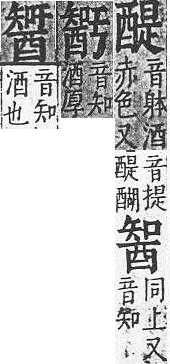 醍音躰酒赤色又音提醍醐同上又音知
音知酒厚
音知酒也